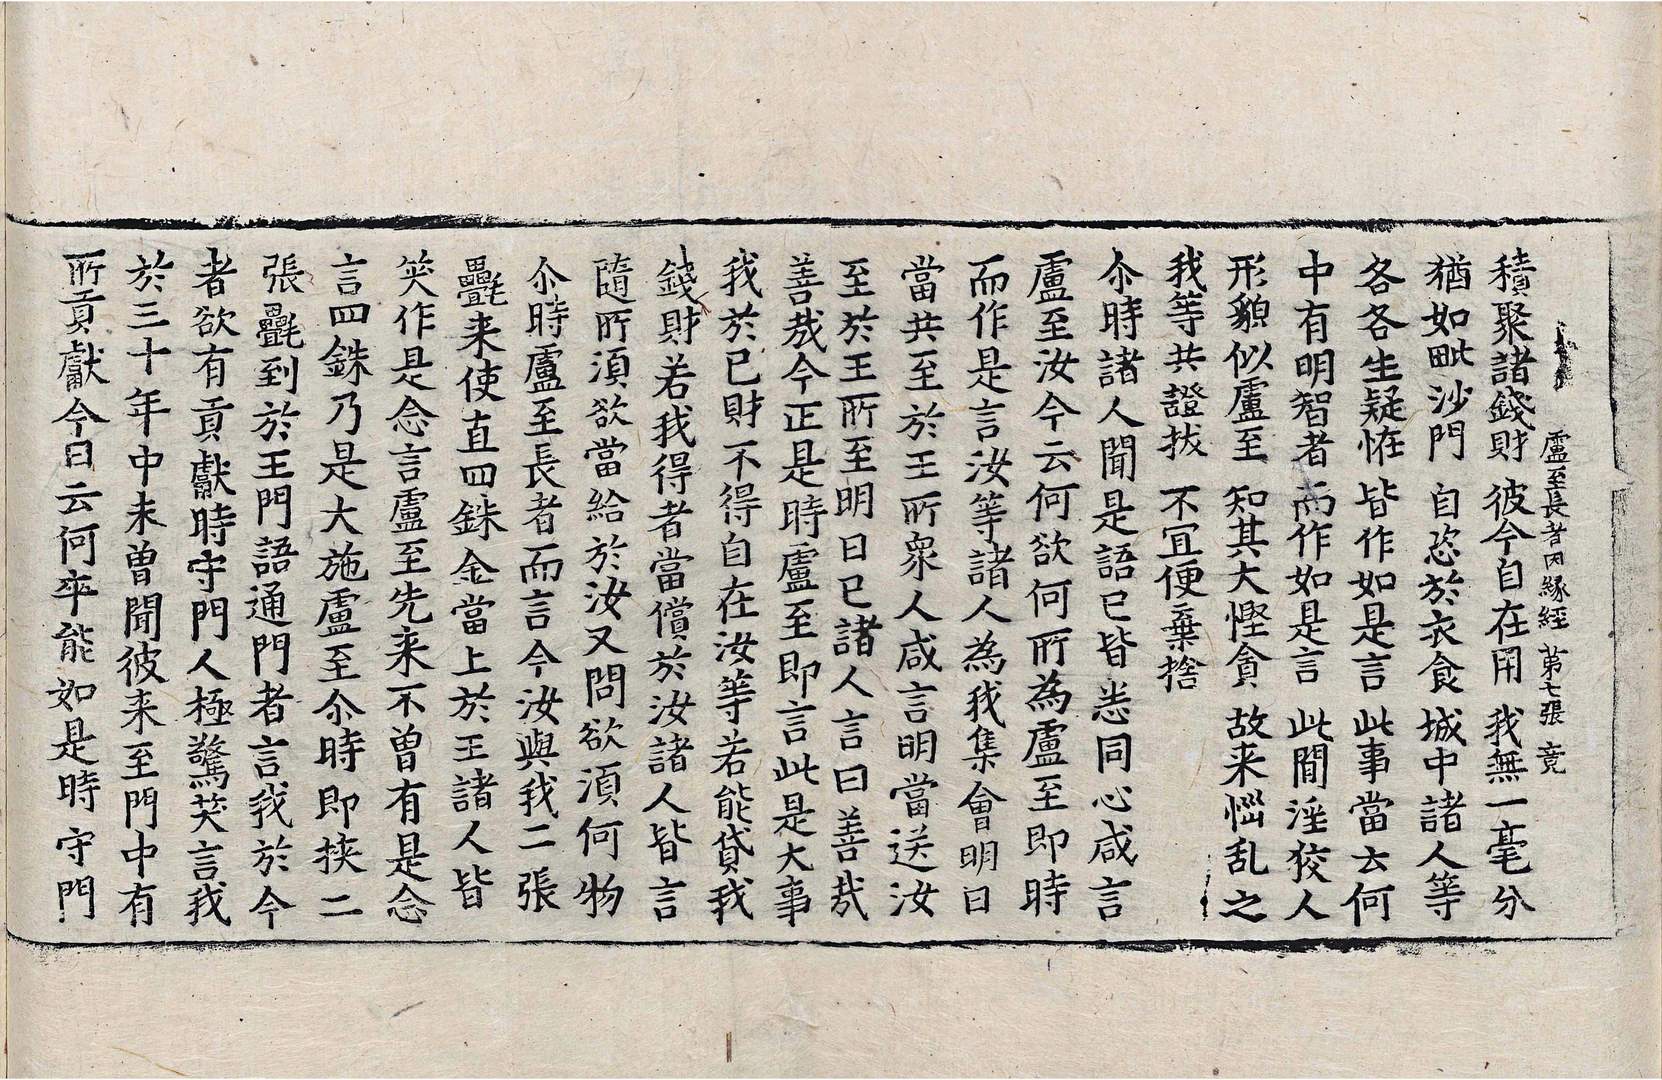 盧至長者因緣經 第七張 竟
積聚諸錢財 彼今自在用 我無一毫分
猶如毗沙門 自恣於衣食 城中諸人等
各各生疑恠 皆作如是言 此事當云何
中有明智者 而作如是言 此閒淫狡人
形貌似盧至 知其大慳貪 故来惱乱之
我等共證拔 不宜便棄捨
尒時諸人聞是語已皆悉同心咸言
盧至汝今云何欲何所為盧至即時
而作是言汝等諸人為我集會明日
當共至於王所衆人咸言明當送汝
至於王所至明日已諸人言曰善哉
善哉今正是時盧至即言此是大事
我於已財不得自在汝等若能貸我
錢財若我得者當償於汝諸人皆言
隨所湏欲當給於汝又問欲湏何物
尒時盧至長者而言今汝與我二張
㲲来使直四銖金當上於王諸人皆
笑作是念言盧至先来不曽有是念
言四銖乃是大施盧至尒時即挾二
張㲲到於王門語通門者言我於今
者欲有貢獻時守門人極驚笑言我
於三十年中未曽聞彼来至門中有
所貢獻今日云何卒能如是時守門